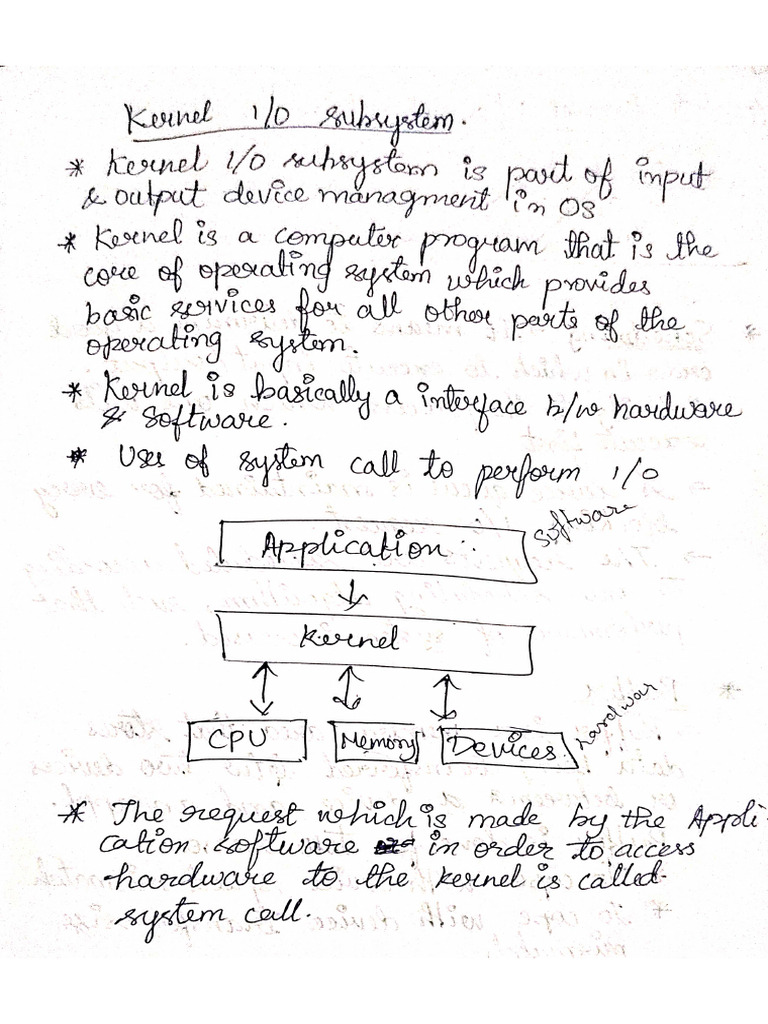 Kernel I/O subsystem.
* Kernel I/O subsystem is part of input
& output device managment in OS
* Kernel is a computer program that is the
core of operating system which provides
basic services for all other parts of the
operating system.
* Kernel is basically a interface b/w hardware
& software.
* Uses of system call to perform I/O
Application
software
Kernel
CPU Memory Devices
hardwar
* The request which is made by the Appli-
cation software in order to access
hardware to the kernel is called
system call.